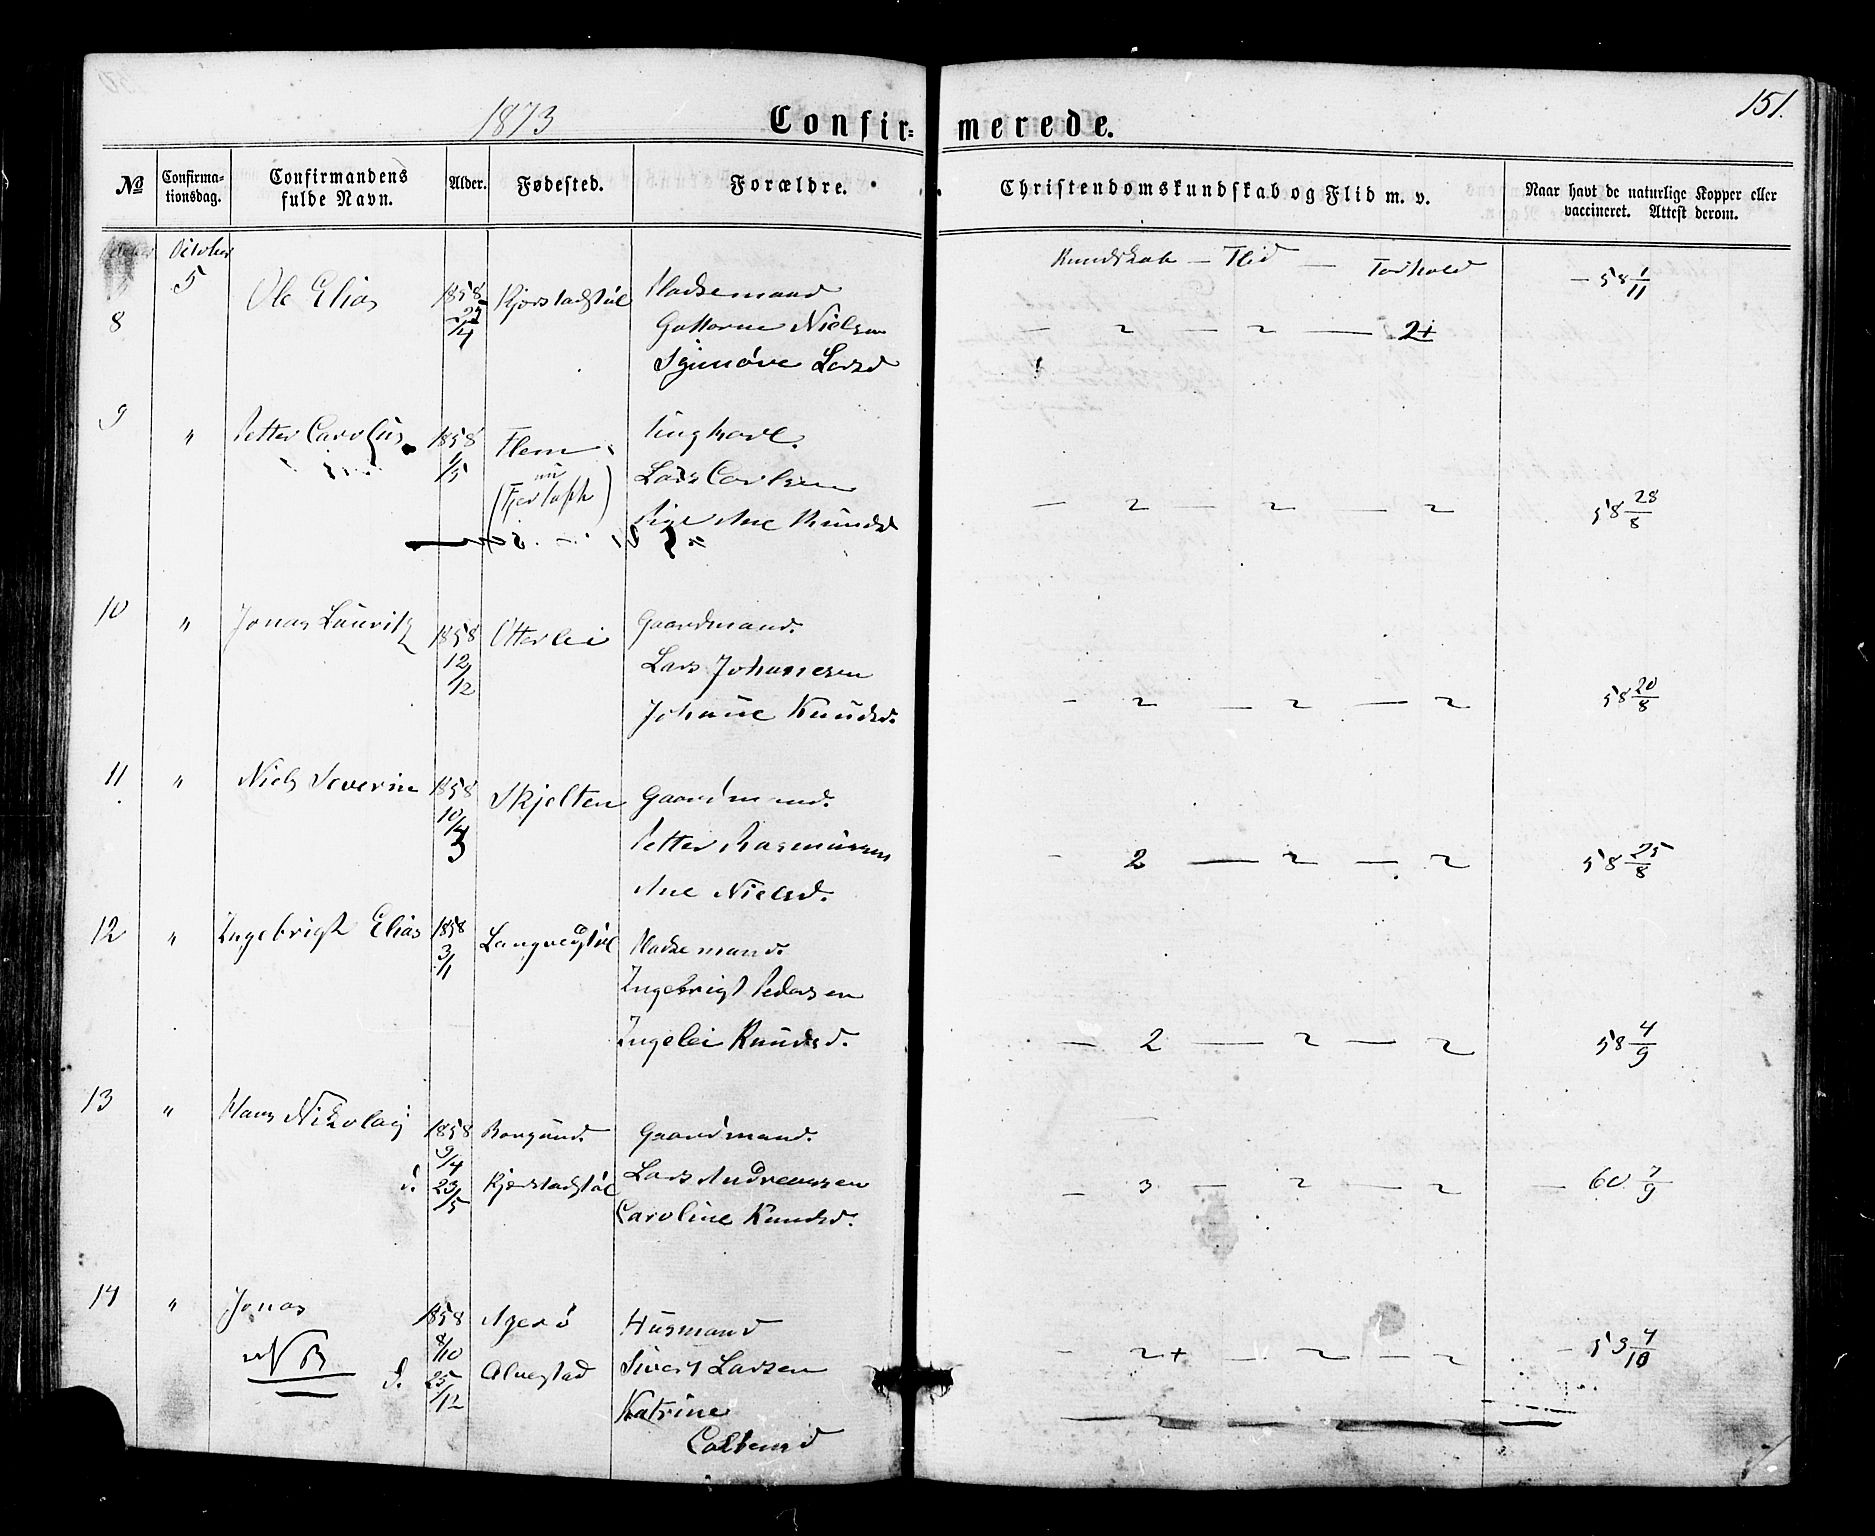 1873 Confir= merede. 151.
№ Confirma=
tionsdag. Confirmandens
fulde Navn. Alder. Fødested. Forældre. Christendomskundskab og Flid m. v. Naar havt de naturlige Kopper eller
vaccineret. Attest derom.
October
Kundskab — Flid — Forhold
8 5 Ole Elias 1858 Kjørstadstøl Pladsemand — 58 1/11
Guttorm Nielsen — 2 — 2 — 2+
Synnøve Larsd
9 " Petter Carolus 1858 1/5 Flem
nu
(Fjørtoft)
Ungkarl.
Lars Carlsen
Pige Ane Knudsd — 2 — 2 — 2 58 28/8
10 " Jonas Lauritz 1858 12/12 Otterlei Gaardmand.
Lars Johannesen
Johanne Knudsd. - 2 — 2 — 2 58 20/8
11 " Niels Severin 1858 10/3 Skjelten Gaardmand.
Petter Rasmussen - 2 — 2 — 2 58 25/8
Ane Nielsd.
12 " Ingebrigt Elias 1858 3/1 Longvestøl Pladsemand.
Ingebrigt Pedersen
Ingelei Knudsd. — 2 — 2 — 2 58 4/9
13 " Hans Nikolaj 1858 9/4 Borgund. Gaardmand.
d. 23/5 Kjørstadstøl Lars Andreassen — 3 — 2 — 2 — 60 7/9
Caroline Knudsd.
14 " Jonas 1858 8/10 Agerø Husmand
NB d. 25/12 Alvestad Sivert Larsen - 2+ — 2 — 2 - 59 4/10
Katrine